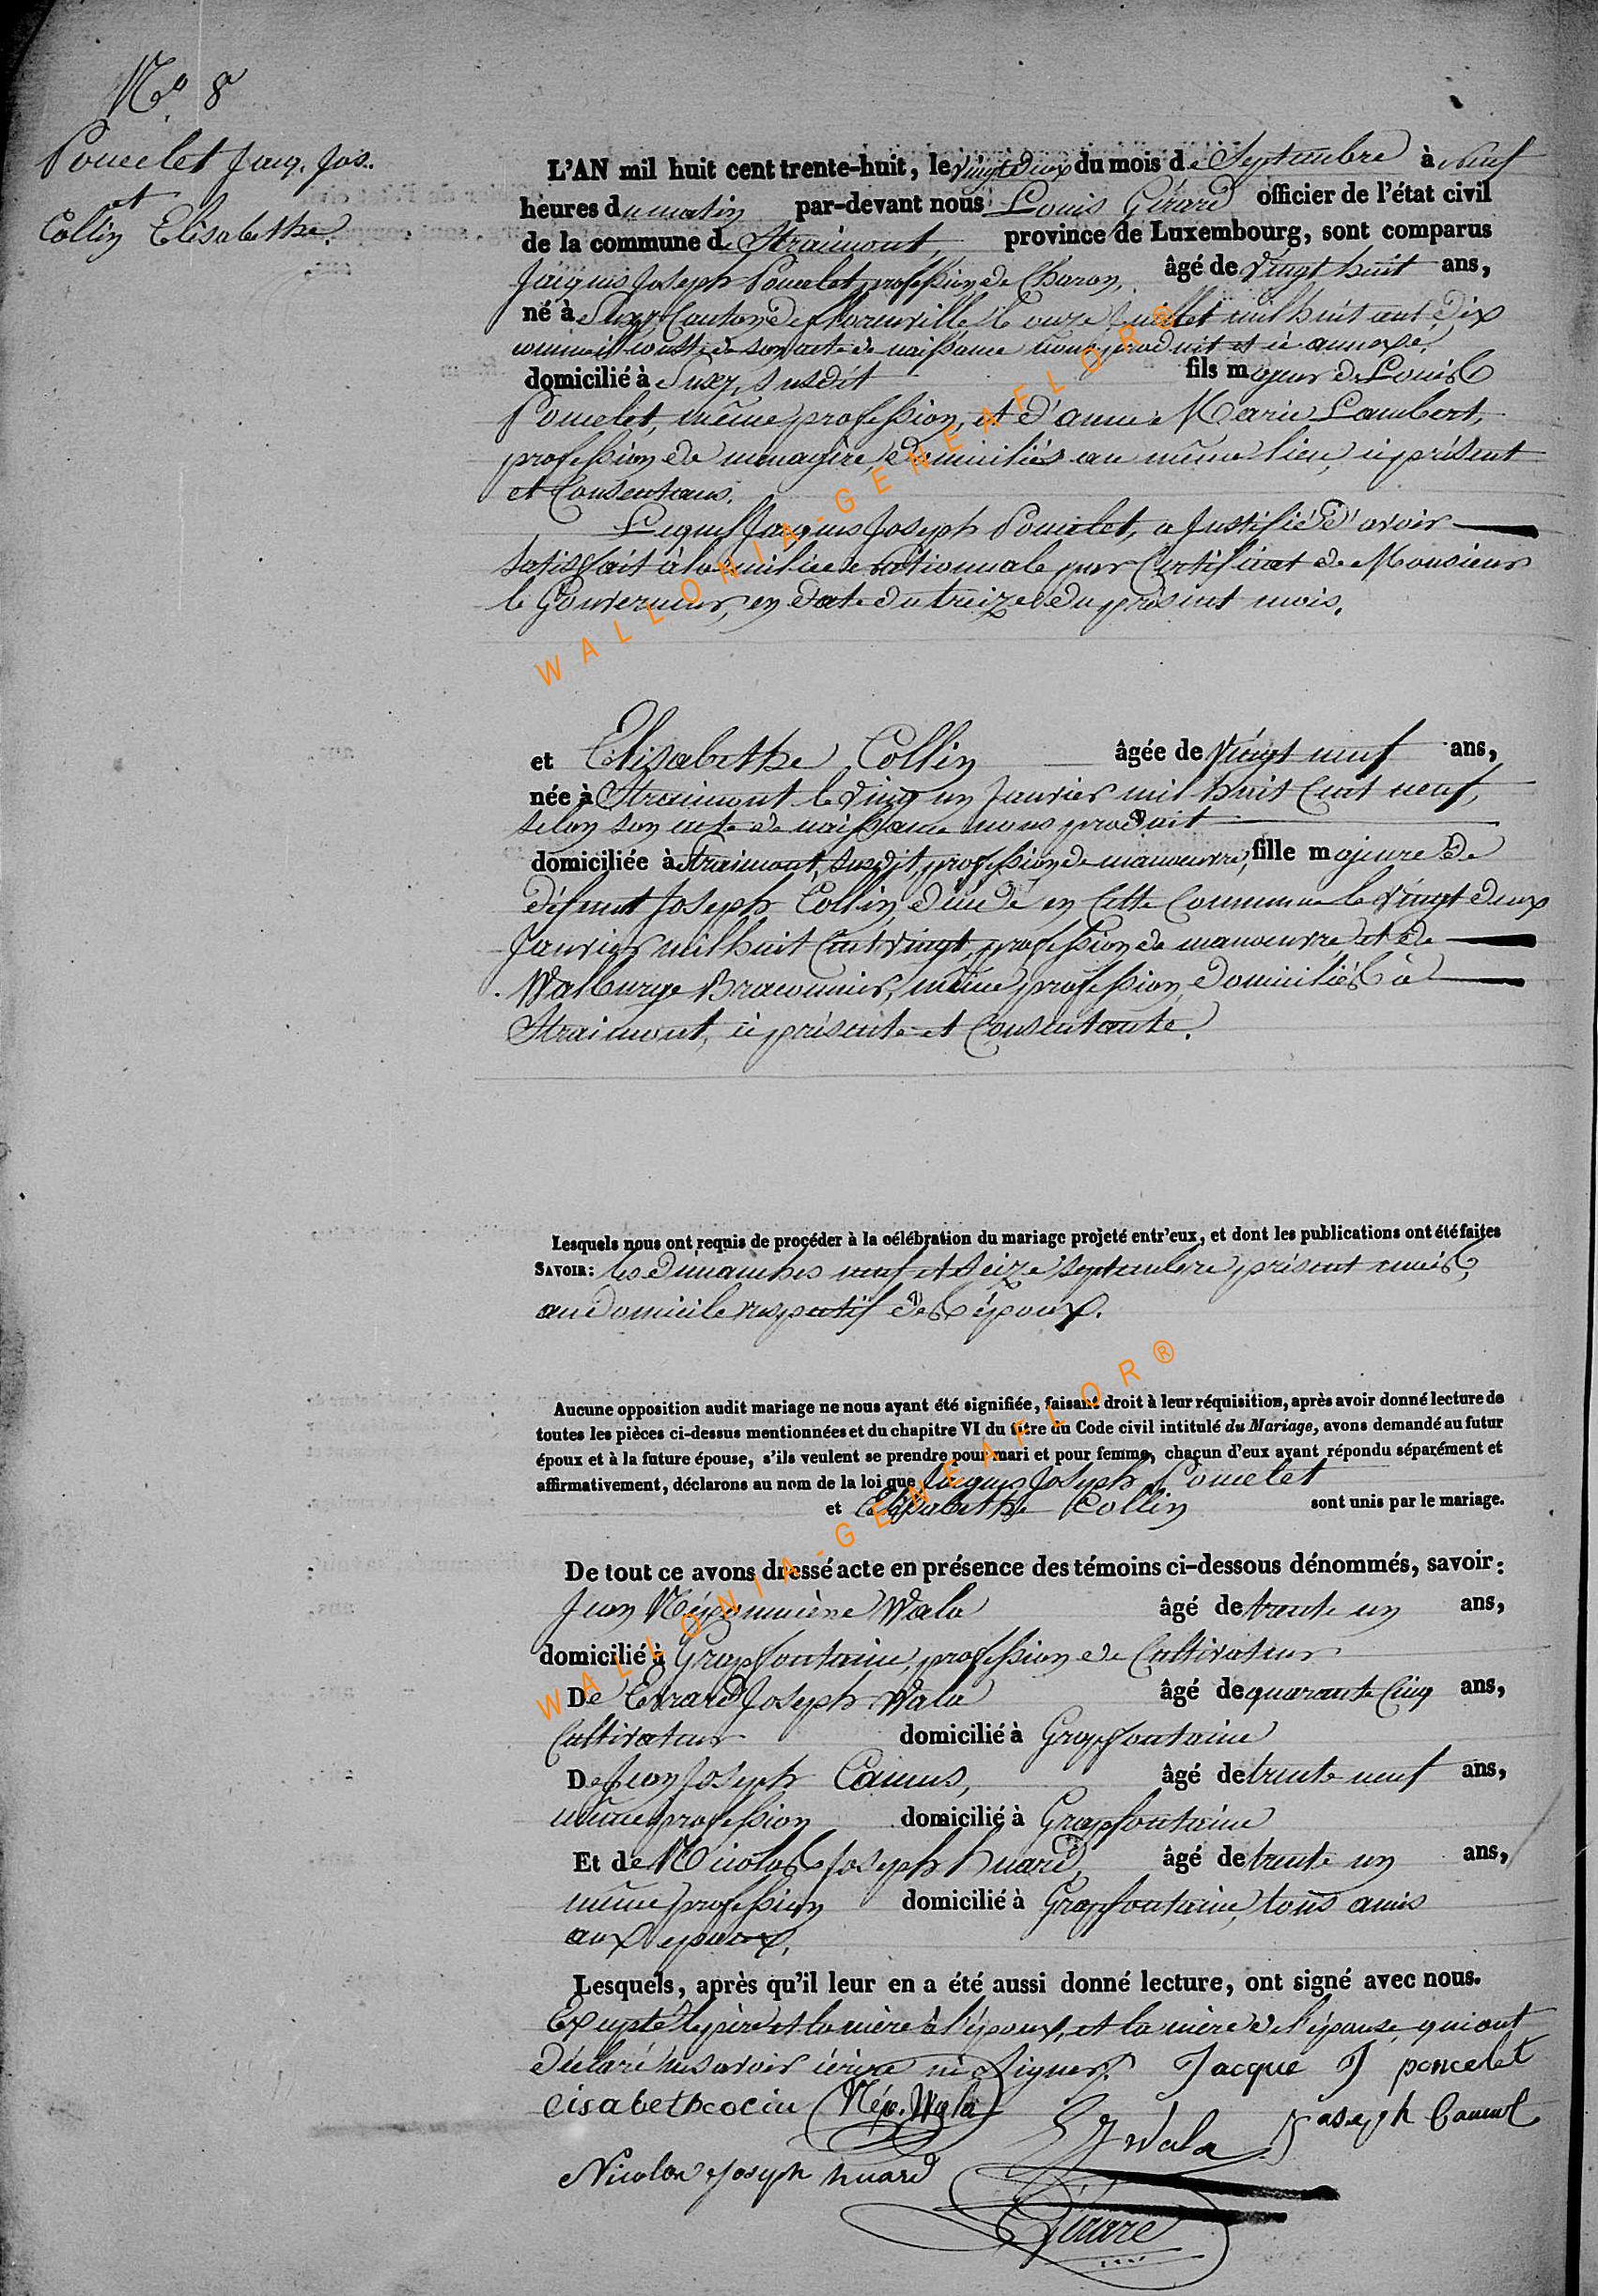 No 8
Poncelet Jacq. Jos.
et
Collin Elisabethe.
L'AN mil huit cent trente-huit, le vingt deux du mois de Septembre à neuf
heures du matin par-devant nous Louis Gérard officier de l'état civil
de la commune de Straimont, province de Luxembourg, sont comparus
Jacques Joseph Poncelet, profession de Charon, âgé de vingt huit ans,
né à Suxy, Canton de florenville le onze Juillet mil huit cent dix
comme il conste de son acte de naissance nous produit et ci annexé,
domicilié à Suxy, susdit fils majeur de Louis
Poncelet, même profession, et d'anne Marie Lambert,
profession de menagère, domiciliés au même lieu, ci présent
et Consentans.
Lequel Jacques Joseph Poncelet, a Justifié d'avoir
satisfait à la milice nationnale par Certificat de Monsieur
le Gouverneur, en date du treize du présent mois.
WALLONIA-GENEAFLOR®
et Elisabethe Collin âgée de Vingt neuf ans,
née à Straimont le vingt un Janvier mil huit Cent neuf,
selon son acte de naissance nous produit
domiciliée à Straimont, susdit, profession de manoeuvre, fille majeure de
défunt Joseph Collin, décidé en Cette Commune le vingt deux
Janvier mil huit Cent vingt, profession de manoeuvre, et de
Walburge Braconnier, même profession, domiciliés à
Straimont, ci présente et Consentante.
Lesquels nous ont requis de procéder à la célébration du mariage projeté entr'eux, et dont les publications ont été faites
SAVOIR: les dimanches neuf et seize septembre présent mois,
au domicile respectif des époux.
Aucune opposition audit mariage ne nous ayant été signifiée, faisant droit à leur réquisition, après avoir donné lecture de
toutes les pièces ci-dessus mentionnées et du chapitre VI du titre du Code civil intitulé du Mariage, avons demandé au futur
époux et à la future épouse, s'ils veulent se prendre pour mari et pour femme, chaçun d'eux ayant répondu séparément et
affirmativement, déclarons au nom de la loi que Jacques Joseph Poncelet
et Elisabethe Collin sont unis par le mariage.
De tout ce avons dressé acte en présence des témoins ci-dessous dénommés, savoir:
Jean Népomucène Wala âgé de trente un ans,
domicilié à Grapfontaine, profession de Cultivateur
De Evrard Joseph Wala âgé de quarante Cinq ans,
Cultivateur domicilié à Grapfontaine
De Jean Joseph Camus, âgé de trente neuf ans,
même profession domicilié à Grapfontaine
Et de Nicolas Joseph huard, âgé de trente un ans,
même profession domicilié à Grapfontaine, tous amis
aux epoux,
Lesquels, après qu'il leur en a été aussi donné lecture, ont signé avec nous.
Excepté le père et la mère de l'époux, et la mère de l'épouse, qui ont
déclaré ne savoir écrire ni signer. Jacque J poncelet
Nép. Wala
EJ Wala Joseph Camus
Nicolas Joseph huard
Girard
WALLONIA-GENEAFLOR®